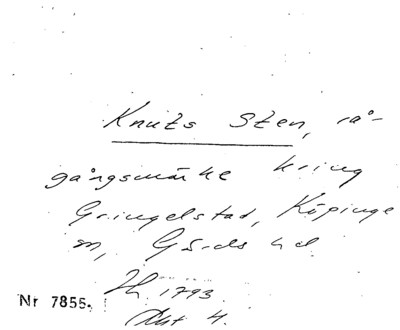 Knuts Sten, rå-
gångsmärke kring
Gringelstad, Köpinge
sn, Gärds hd
Jh 1793
Akt 4.
Nr 7855.